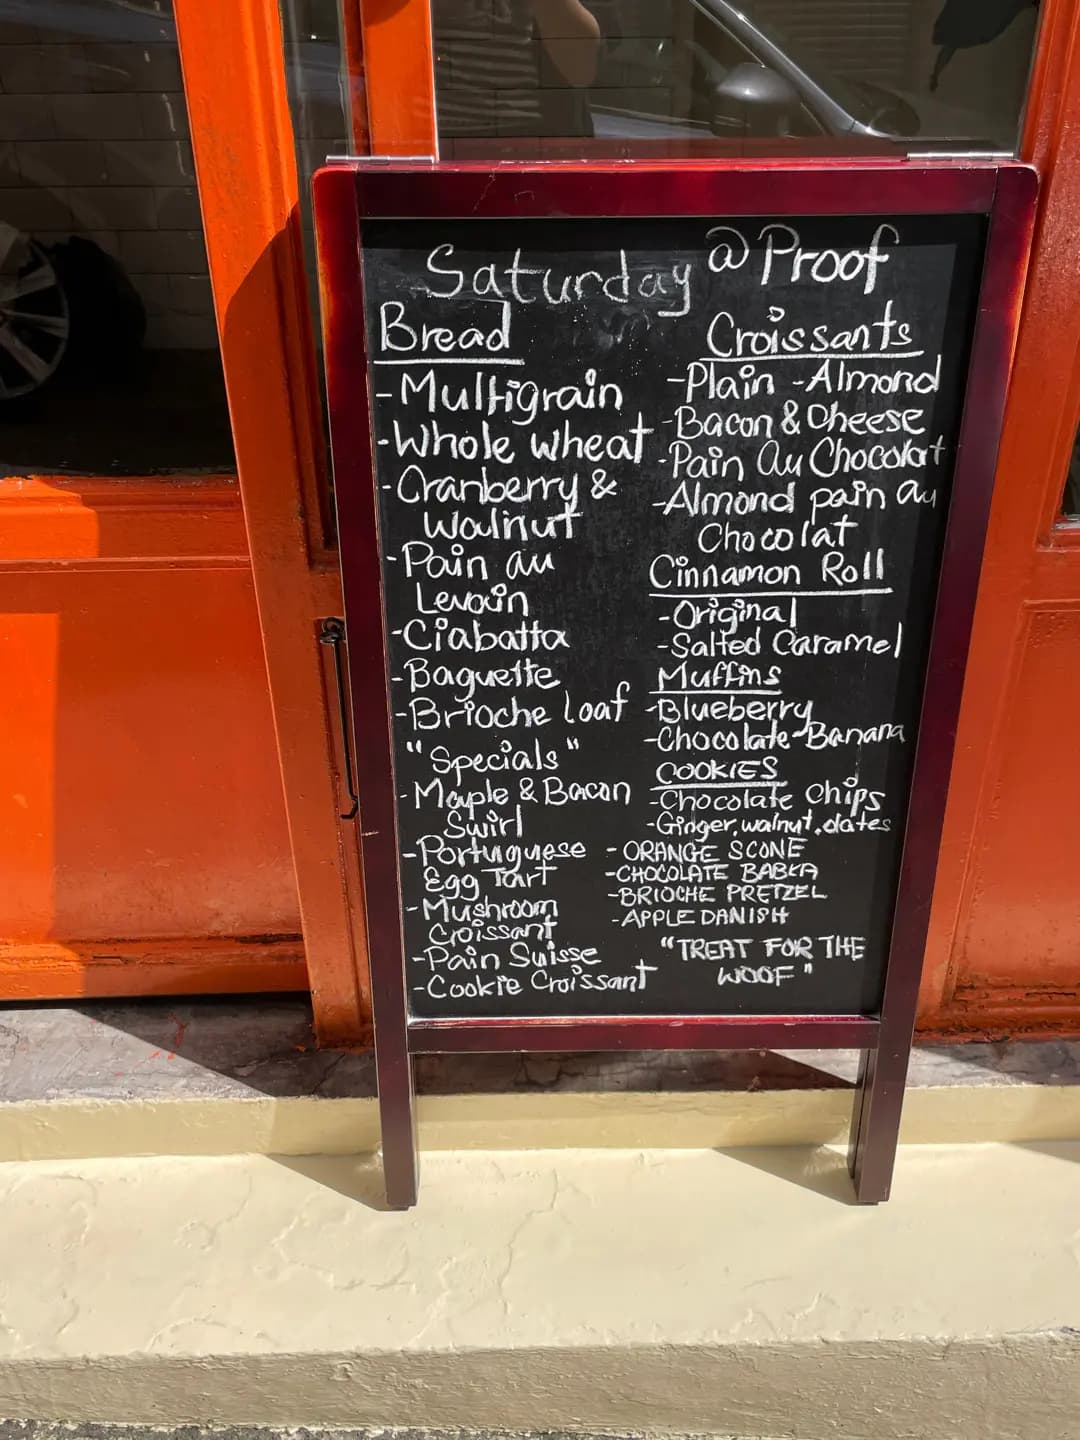 Saturday @ Proof
Bread
-Multigrain
-Whole wheat
-Cranberry &
Walnut
-Pain au
Levain
-Ciabatta
-Baguette
-Brioche loaf
"Specials"
-Maple & Bacon
Swirl
-Portuguese
Egg Tart
-Mushroom
Croissant
-Pain Suisse
-Cookie Croissant
Croissants
-Plain -Almond
-Bacon & Cheese
-Pain au Chocolat
-Almond pain au
Chocolat
Cinnamon Roll
-Original
-Salted Caramel
Muffins
-Blueberry
-Chocolate-Banana
COOKIES
-Chocolate Chips
-Ginger, walnut, dates
-ORANGE SCONE
-CHOCOLATE BABKA
-BRIOCHE PRETZEL
-APPLE DANISH
"TREAT FOR THE
WOOF"